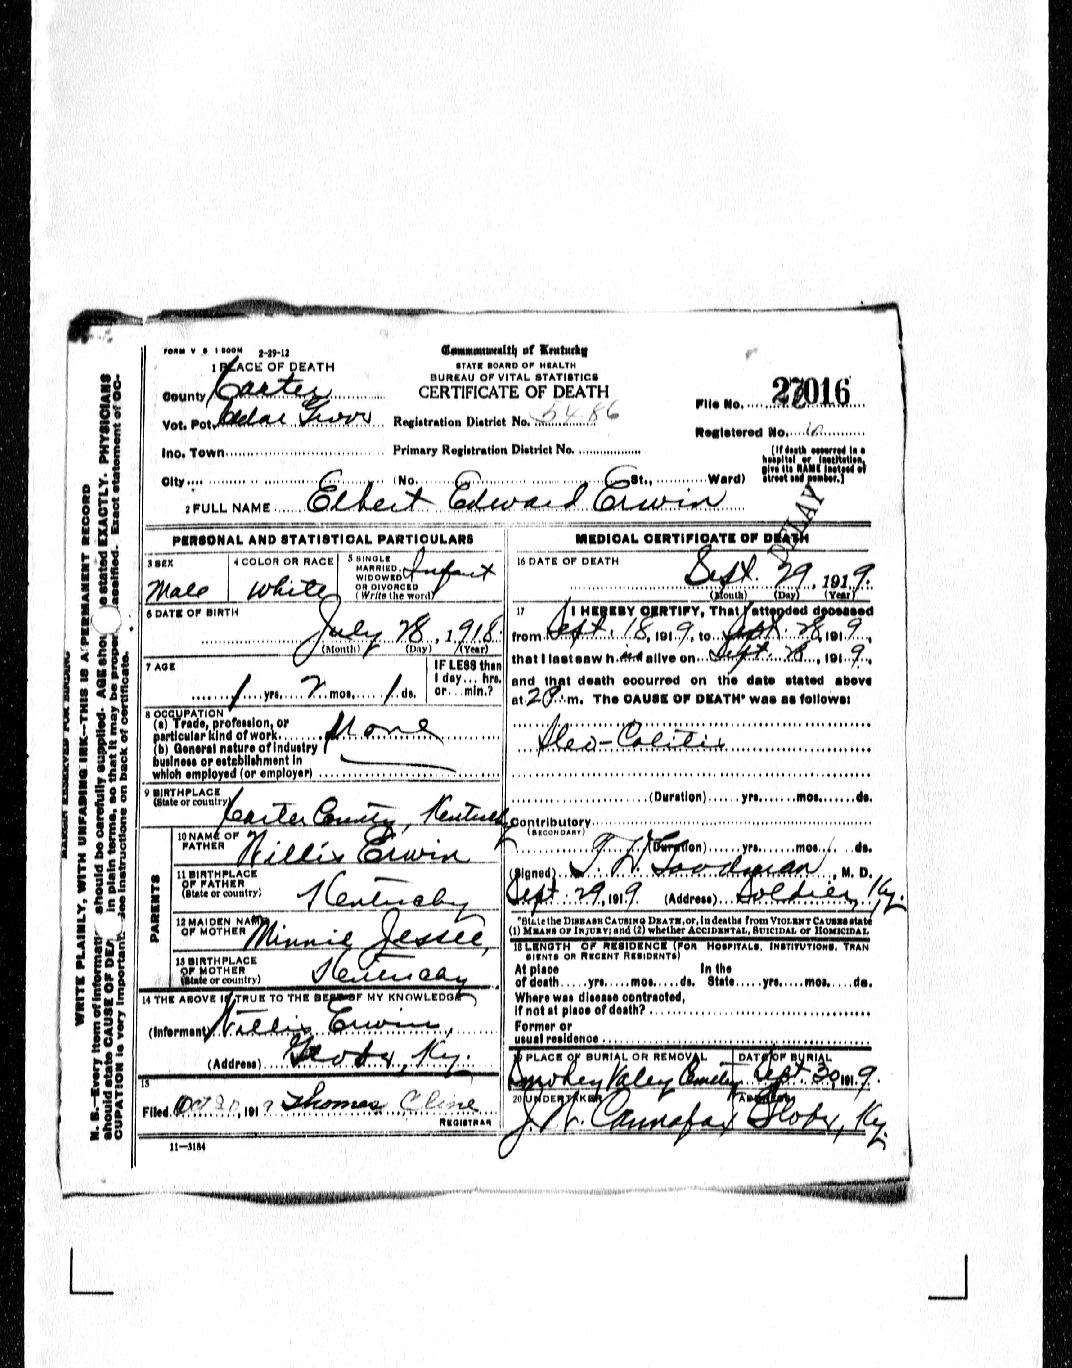 FORM V S 1 500M 2-29-12
Commonwealth of Kentucky
STATE BOARD OF HEALTH
BUREAU OF VITAL STATISTICS
CERTIFICATE OF DEATH
1 PLACE OF DEATH
County Carter
Vot. Pct.
Registration District No. 5486
File No. 27016
Registered No.
Inc. Town
Primary Registration District No.
City No. St., Ward)
[If death occurred in a hospital or institution, give its NAME instead of street and number.]
2 FULL NAME Elbert Edward Erwin
DELAY
PERSONAL AND STATISTICAL PARTICULARS
3 SEX Male
4 COLOR OR RACE White
5 SINGLE MARRIED, WIDOWED OR DIVORCED (Write the word) Infant
6 DATE OF BIRTH
July 28, 1918
(Month) (Day) (Year)
7 AGE
1 yrs. 2 mos. 1 ds.
IF LESS than 1 day... hrs. or... min.?
8 OCCUPATION
(a) Trade, profession, or particular kind of work None
(b) General nature of industry business or establishment in which employed (or employer)
9 BIRTHPLACE
(State or country) Carter County, Kentucky
PARENTS
10 NAME OF FATHER Willis Erwin
11 BIRTHPLACE OF FATHER (State or country) Kentucky
12 MAIDEN NAME OF MOTHER Minnie Jessee,
13 BIRTHPLACE OF MOTHER (State or country) Kentucky
14 THE ABOVE IS TRUE TO THE BEST OF MY KNOWLEDGE
(Informant) Willis Erwin,
(Address) Globe, Ky.
15
Filed Oct 191 Thomas Cline
REGISTRAR
11—3184
MEDICAL CERTIFICATE OF DEATH
16 DATE OF DEATH
Sept. 29, 1919.
(Month) (Day) (Year)
17 I HEREBY CERTIFY, That I attended deceased
from Sept. 18, 1919, to Sept. 28, 1919,
that I last saw h im alive on Sept. 28, 1919,
and that death occurred on the date stated above
at 2 P. m. The CAUSE OF DEATH* was as follows:
Ileo-Colitis
(Duration) yrs. mos. ds.
Contributory
(SECONDARY)
(Duration) yrs. mos. ds.
(Signed) T. W. Woodman, M. D.
Sept. 29, 1919 (Address) Soldier, Ky.
*State the DISEASE CAUSING DEATH, or, in deaths from VIOLENT CAUSES state
(1) MEANS OF INJURY; and (2) whether ACCIDENTAL, SUICIDAL or HOMICIDAL
18 LENGTH OF RESIDENCE (FOR HOSPITALS, INSTITUTIONS, TRANSIENTS OR RECENT RESIDENTS)
At place In the
of death yrs. mos. ds. State yrs. mos. ds.
Where was disease contracted,
if not at place of death?
Former or
usual residence
19 PLACE OF BURIAL OR REMOVAL DATE OF BURIAL
Smokey Valey Cemetery Sept. 30 1919.
20 UNDERTAKER ADDRESS
J. W. Cannafax Globe, Ky.
MARGIN RESERVED FOR BINDING
WRITE PLAINLY, WITH UNFADING INK—THIS IS A PERMANENT RECORD
N. B.—Every item of information should be carefully supplied. AGE should be stated EXACTLY. PHYSICIANS
should state CAUSE OF DEATH in plain terms, so that it may be properly classified. Exact statement of OCCUPATION is very important. See instructions on back of certificate.